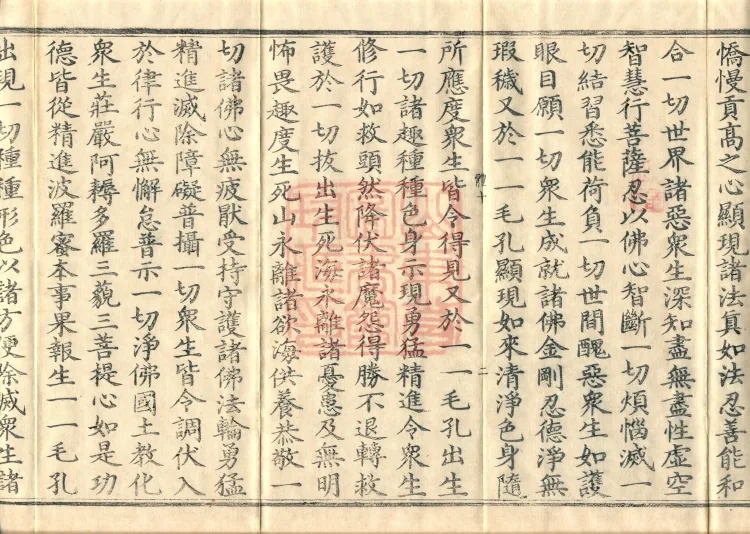 憍慢貢高之心顯現諸法真如法忍善能和
合一切世界諸惡衆生深知盡無盡性虛空
智慧行菩薩忍以佛心智斷一切煩惱滅一
切結習悉能荷負一切世間醜惡衆生如護
眼目願一切衆生成就諸佛金剛忍德淨無
瑕穢又於一一毛孔顯現如來清淨色身隨
二
所應度衆生皆令得見又於一一毛孔出生
一切諸趣種種色身示現勇猛精進令衆生
修行如救頭然降伏諸魔怨得勝不退轉救
護於一切拔出生死海永離諸憂患及無明
怖畏趣度生死山永離諸欲海供養恭敬一
切諸佛心無疲厭受持守護諸佛法輪勇猛
精進滅除障礙普攝一切衆生皆令調伏入
於律行心無懈怠普示一切淨佛國土教化
衆生莊嚴阿耨多羅三藐三菩提心如是功
德皆從精進波羅蜜本事果報生一一毛孔
出現一切種種形色以諸方便除滅衆生諸